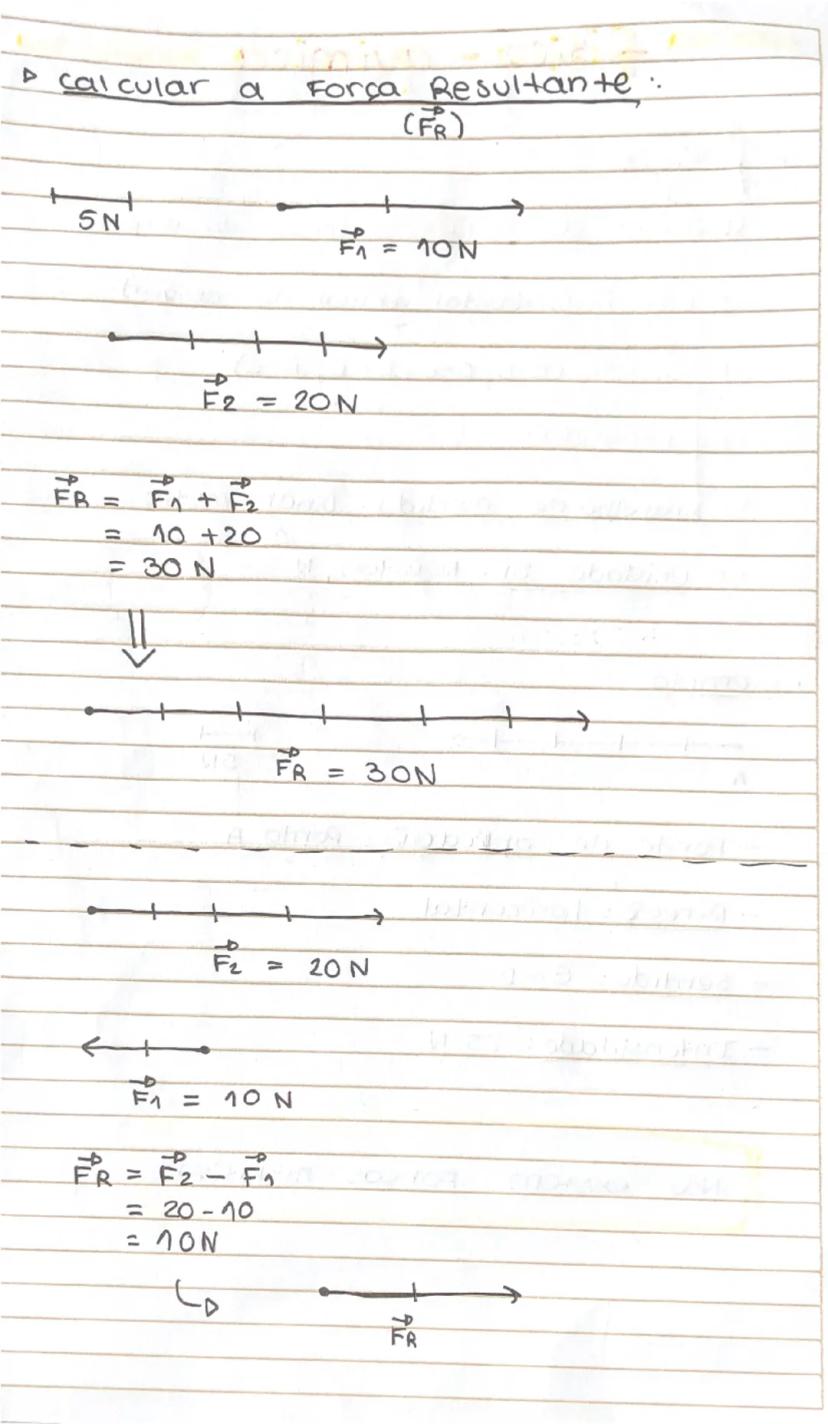 ▷ Calcular a Força Resultante :
(F⃗R)
5N
F⃗1 = 10N
F⃗2 = 20N
F⃗R = F⃗1 + F⃗2
= 10 + 20
= 30 N
F⃗R = 30N
F⃗2 = 20N
F⃗1 = 10 N
F⃗R = F⃗2 - F⃗1
= 20 - 10
= 10N
F⃗R